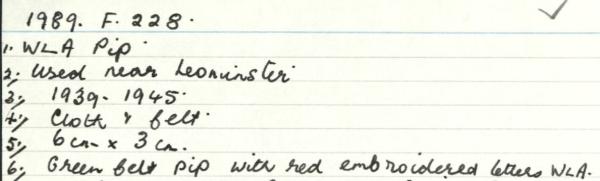 1989. F. 228.
1. WLA Pip.
2. Used near Leominster.
3. 1939-1945.
4. Cloth & felt.
5. 6 cm x 3 cm.
6. Green felt pip with red embroidered letters WLA.